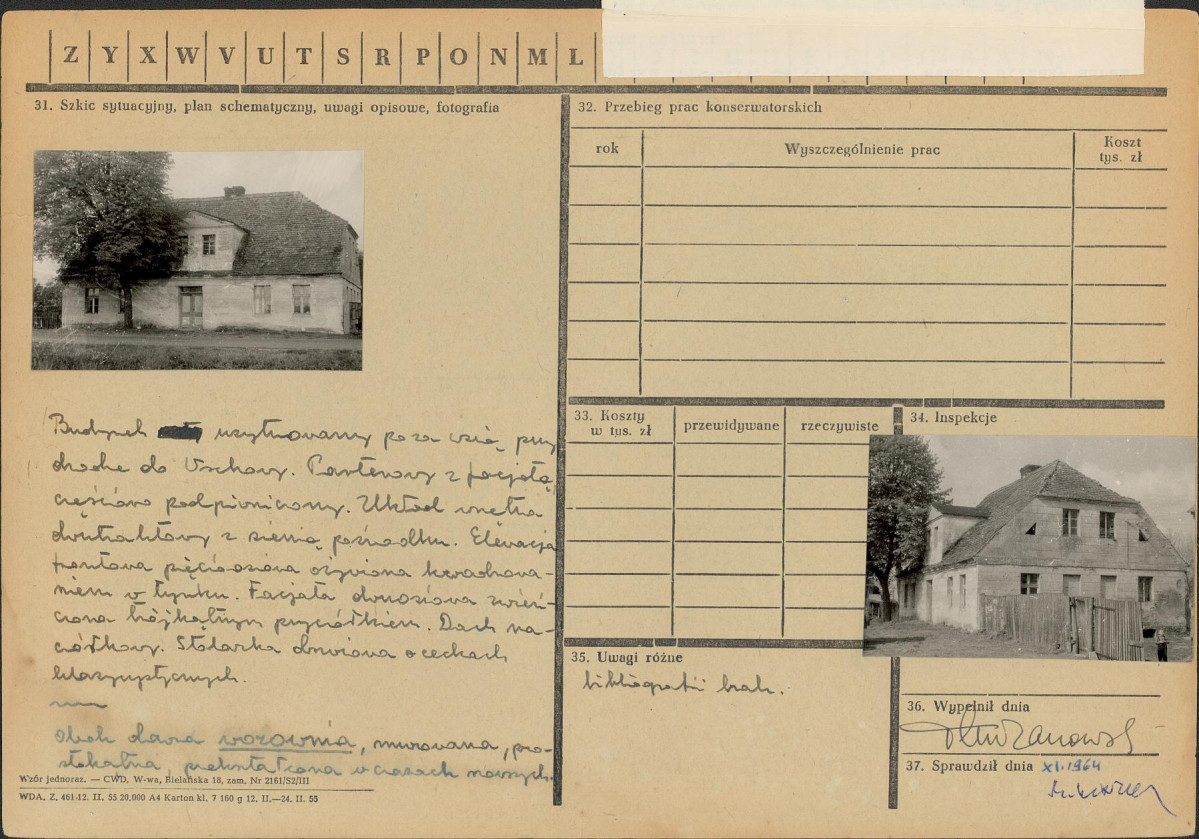 Z Y X W V U T S R P O N M L
31. Szkic sytuacyjny, plan schematyczny, uwagi opisowe, fotografia
Budynek usytuowany poza wsią, przy
drodze do Wschowy. Parterowy z facjatą,
częściowo podpiwniczony. Układ wnętrza
dwutraktowy z sienią pośrodku. Elewacja
frontowa pięcioosiowa ożywiona kwadrowa-
niem w tynku. Facjata dwuosiowa zwień-
czona trójkątnym przyczółkiem. Dach na-
czółkowy. Stolarka drzwiowa o cechach
klasycystycznych.
Obok dawna wozownia, murowana, pro-
stokątna, przekształcona w czasach nowszych.
Wzór jednoraz. — CWD, W-wa, Bielańska 18, zam. Nr 2161/S2/III
WDA. Z. 461 12. II. 55 20.000 A4 Karton kl. 7 160 g 12. II.—24. II. 55
32. Przebieg prac konserwatorskich
rok Wyszczególnienie prac Koszt
tys. zł
33. Koszty
w tys. zł przewidywane rzeczywiste
34. Inspekcje
35. Uwagi różne
bibliografii brak.
36. Wypełnił dnia
37. Sprawdził dnia XI.1964